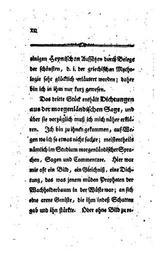 XII
einigen Heynischen Aufsätzen durch Belege
der schönsten, d. i. der griechischen Mytho-
logie sehr glücklich erläutert worden; daher
bin ich in ihm nur kurz gewesen.
Das dritte Stück enthält Dichtungen
aus der morgenländischen Sage, und
über sie vorzüglich muß ich mich näher erklä-
ren. Ich bin zu ihnen gekommen, auf We-
gen wo ich so etwas nicht suchte; meistentheils
nämlich im Studium morgenländischer Spra-
chen, Sagen und Commentare. Hier war
mir oft ein Bild, ein Gleichniß, eine Dich-
tung, das was jenem müden Propheten der
Wachholderbaum in der Wüste war; so ich
eine arme Genistin, die ihm indeß Schatten
gab und ihn stärkte. Oder ohne Bild zu re-